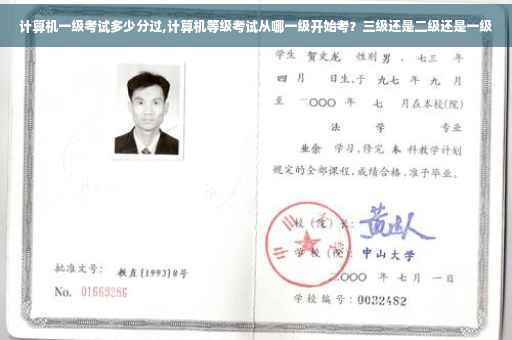 计算机一级考试多少分过,计算机等级考试从哪一级开始考？三级还是二级还是一级
学生 贺文龙 性别 男 、七三 年
四 月 日生,于 九七 年 九 月
至 二〇〇〇 年 七 月在本校(院)
法 学 专业
业余 学习,修完 本 科教学计划
规定的全部课程,成绩合格,准予毕业。
校 (院) 长:
学 校 (院): 中山大学
二〇〇〇 年 七 月 一 日
学校编号: 0032482
批准文号: 教直[1993]8号
No. 01663286